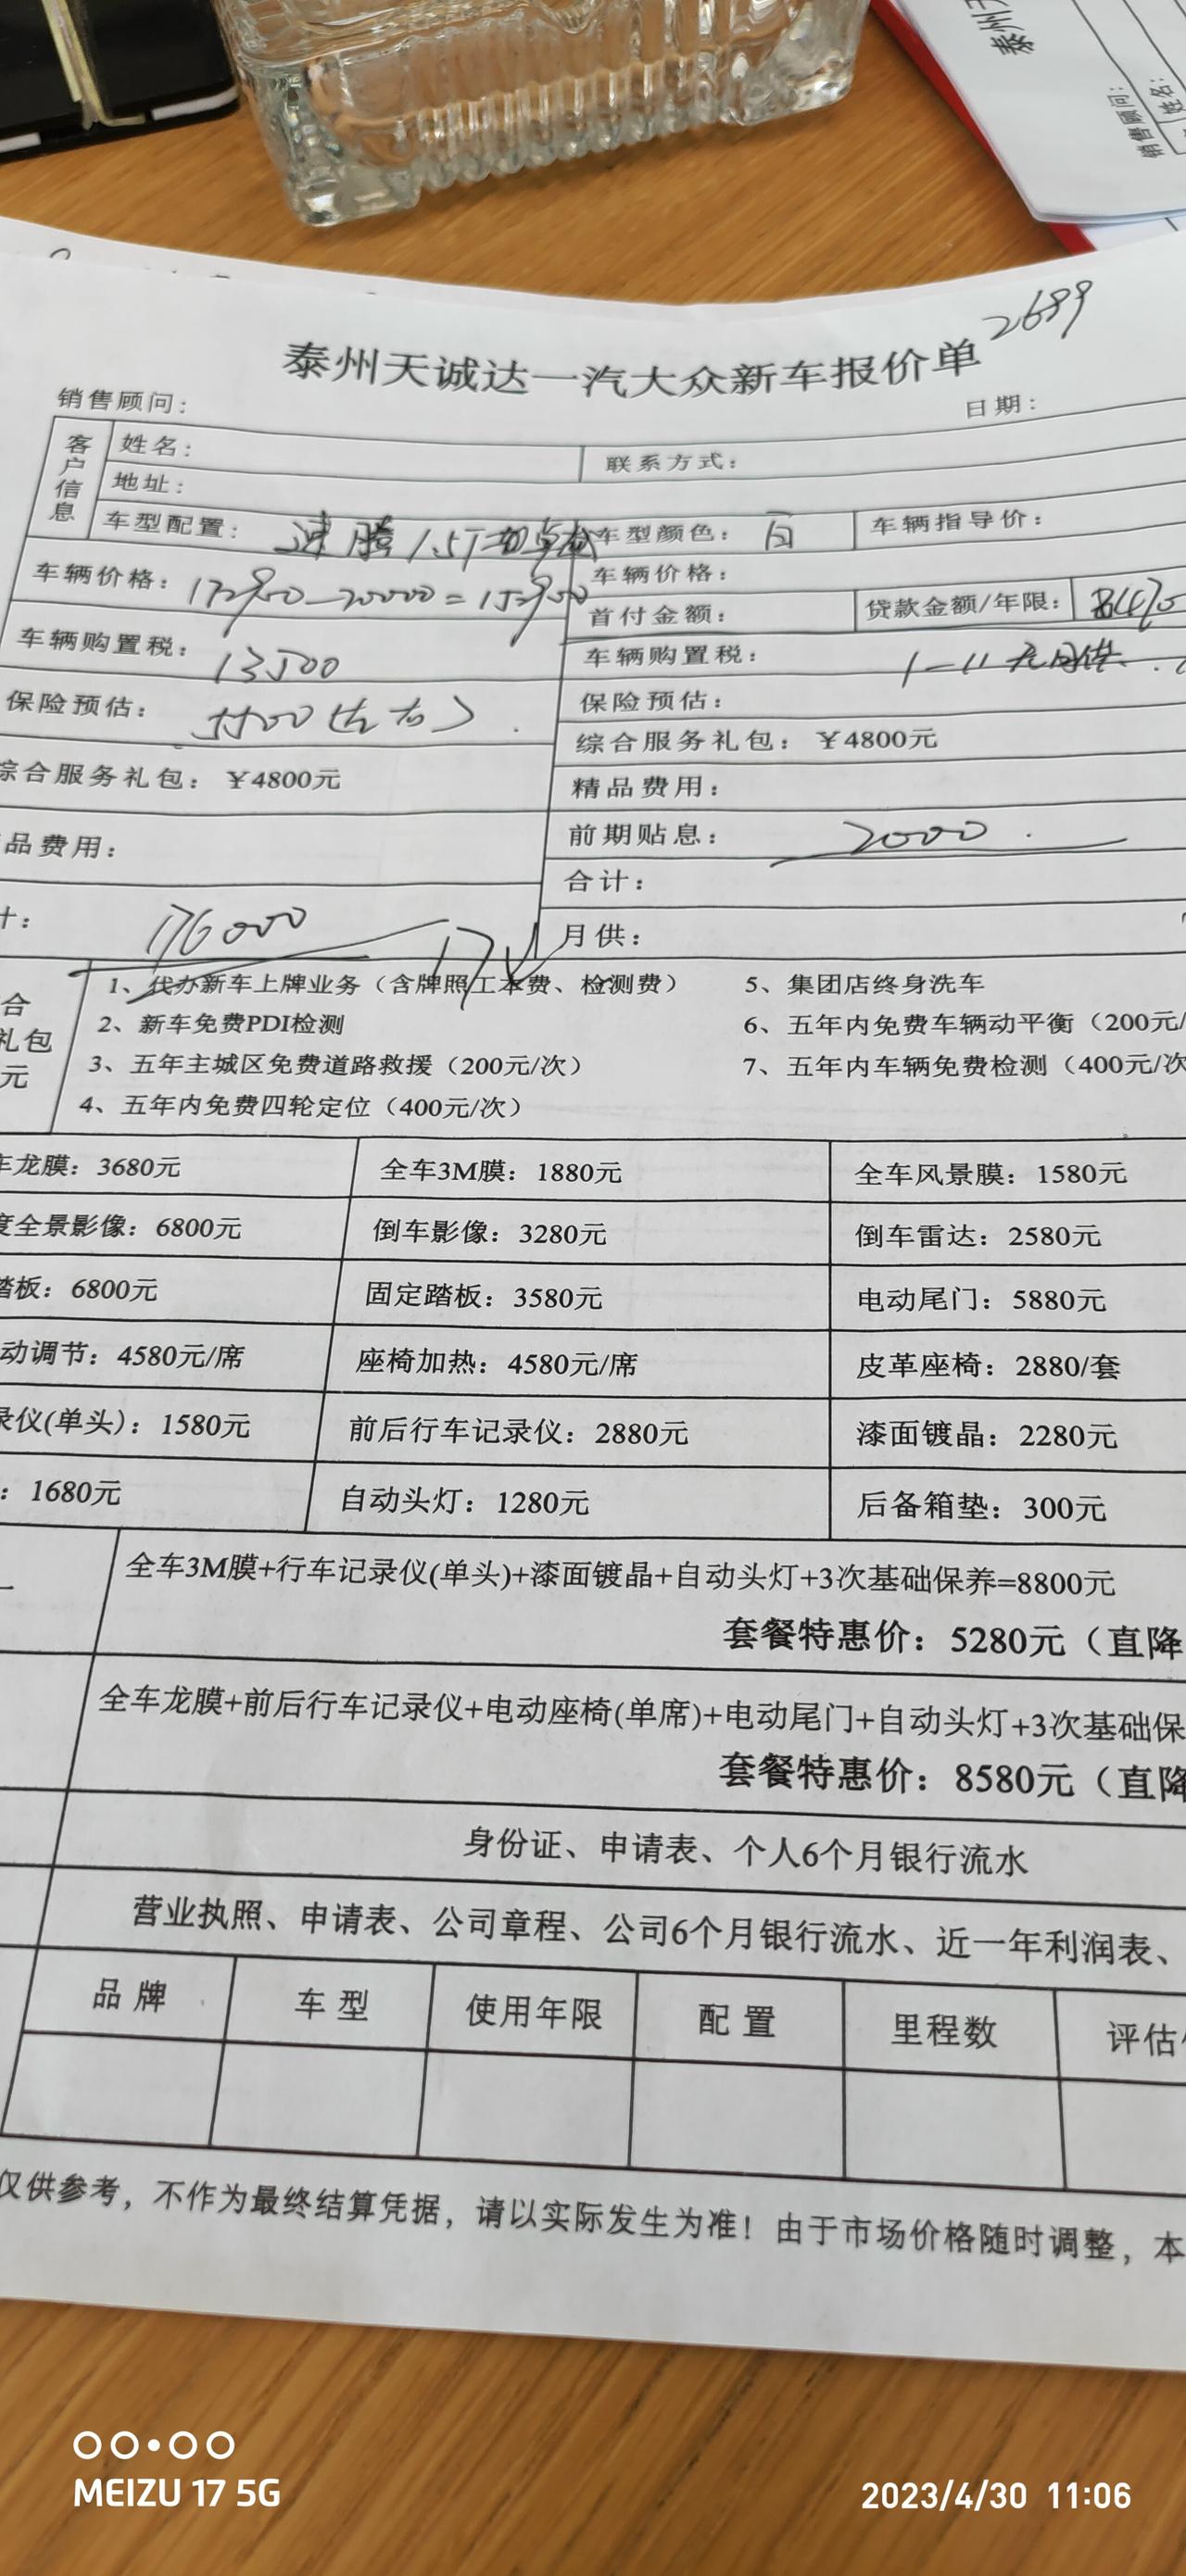 泰州天
销售顾问：
姓名：
泰州天诚达一汽大众新车报价单 2699
销售顾问： 日期：
客户信息 姓名： 联系方式：
地址：
车型配置：速腾1.5T 车型颜色：白 车辆指导价：
车辆价格：172900-20000=152900 车辆价格：
首付金额： 贷款金额/年限：
车辆购置税：13500 车辆购置税：
1-11 无月供
保险预估：5500(左右) 保险预估：
综合服务礼包：￥4800元 综合服务礼包：￥4800元
精品费用：
品费用： 前期贴息：2000
合计：
计：176000 月供：
17
合 礼包 元
1、代办新车上牌业务（含牌照工本费、检测费） 5、集团店终身洗车
2、新车免费PDI检测 6、五年内免费车辆动平衡（200元/
3、五年主城区免费道路救援（200元/次） 7、五年内车辆免费检测（400元/次
4、五年内免费四轮定位（400元/次）
车龙膜：3680元 全车3M膜：1880元 全车风景膜：1580元
度全景影像：6800元 倒车影像：3280元 倒车雷达：2580元
踏板：6800元 固定踏板：3580元 电动尾门：5880元
动调节：4580元/席 座椅加热：4580元/席 皮革座椅：2880/套
录仪(单头)：1580元 前后行车记录仪：2880元 漆面镀晶：2280元
：1680元 自动头灯：1280元 后备箱垫：300元
一 全车3M膜+行车记录仪(单头)+漆面镀晶+自动头灯+3次基础保养=8800元
套餐特惠价：5280元（直降
全车龙膜+前后行车记录仪+电动座椅(单席)+电动尾门+自动头灯+3次基础保
套餐特惠价：8580元（直降
身份证、申请表、个人6个月银行流水
营业执照、申请表、公司章程、公司6个月银行流水、近一年利润表、
品牌 车型 使用年限 配置 里程数 评估
仅供参考，不作为最终结算凭据，请以实际发生为准！由于市场价格随时调整，本
MEIZU 17 5G 2023/4/30 11:06